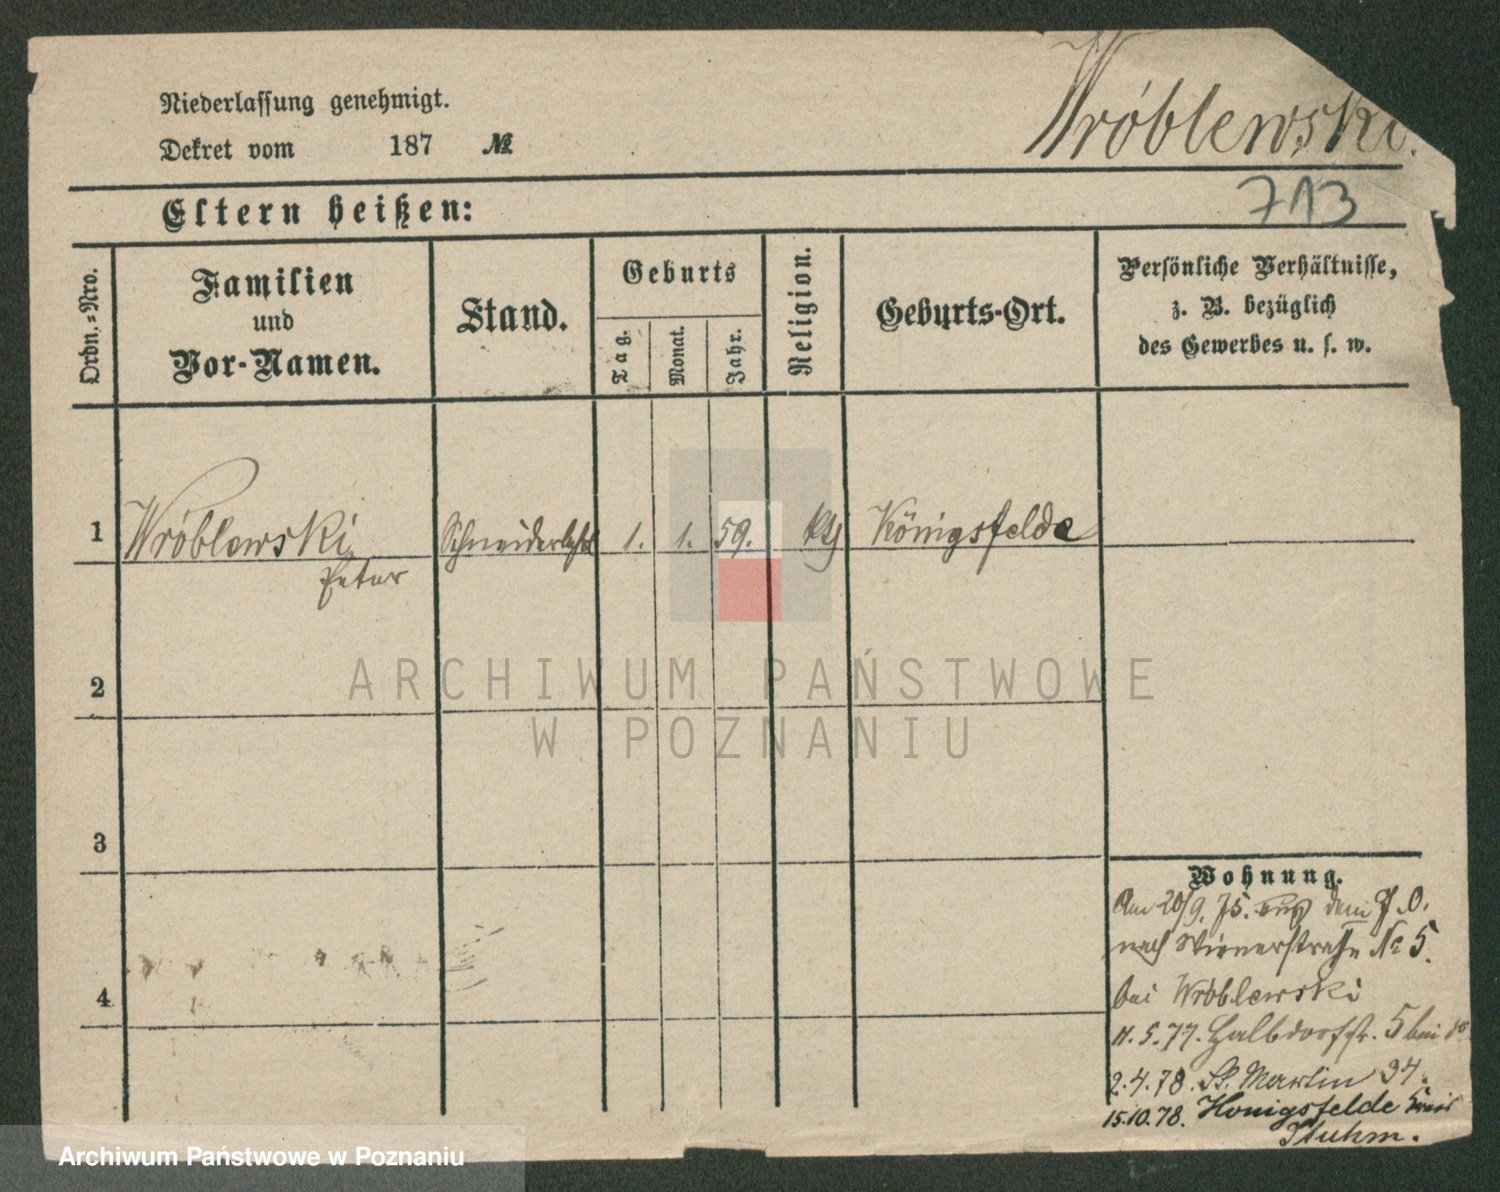 Niederlassung genehmigt.
Wróblewski.
Dekret vom 187 №
713
Eltern heißen:
Ordn.-Nro.
Familien
und
Vor-Namen.
Stand.
Geburts
Tag.
Monat.
Jahr.
Religion.
Geburts-Ort.
Persönliche Verhältnisse,
z. B. bezüglich
des Gewerbes u. s. w.
1 Wróblewski Schneiderlehrl 1. 1. 59. kth Königsfelde
Peter
2
3
4
Wohnung.
Am 20/9. 75. aus dem J. O.
nach Wienerstraße No 5.
bei Wróblewski
11. 5. 77. Halbdorfstr. 5 bei
2. 4. 78. St. Martin 34.
15.10.78. Konigsfelde Kreis
Stuhm.
ARCHIWUM PAŃSTWOWE
W POZNANIU
Archiwum Państwowe w Poznaniu